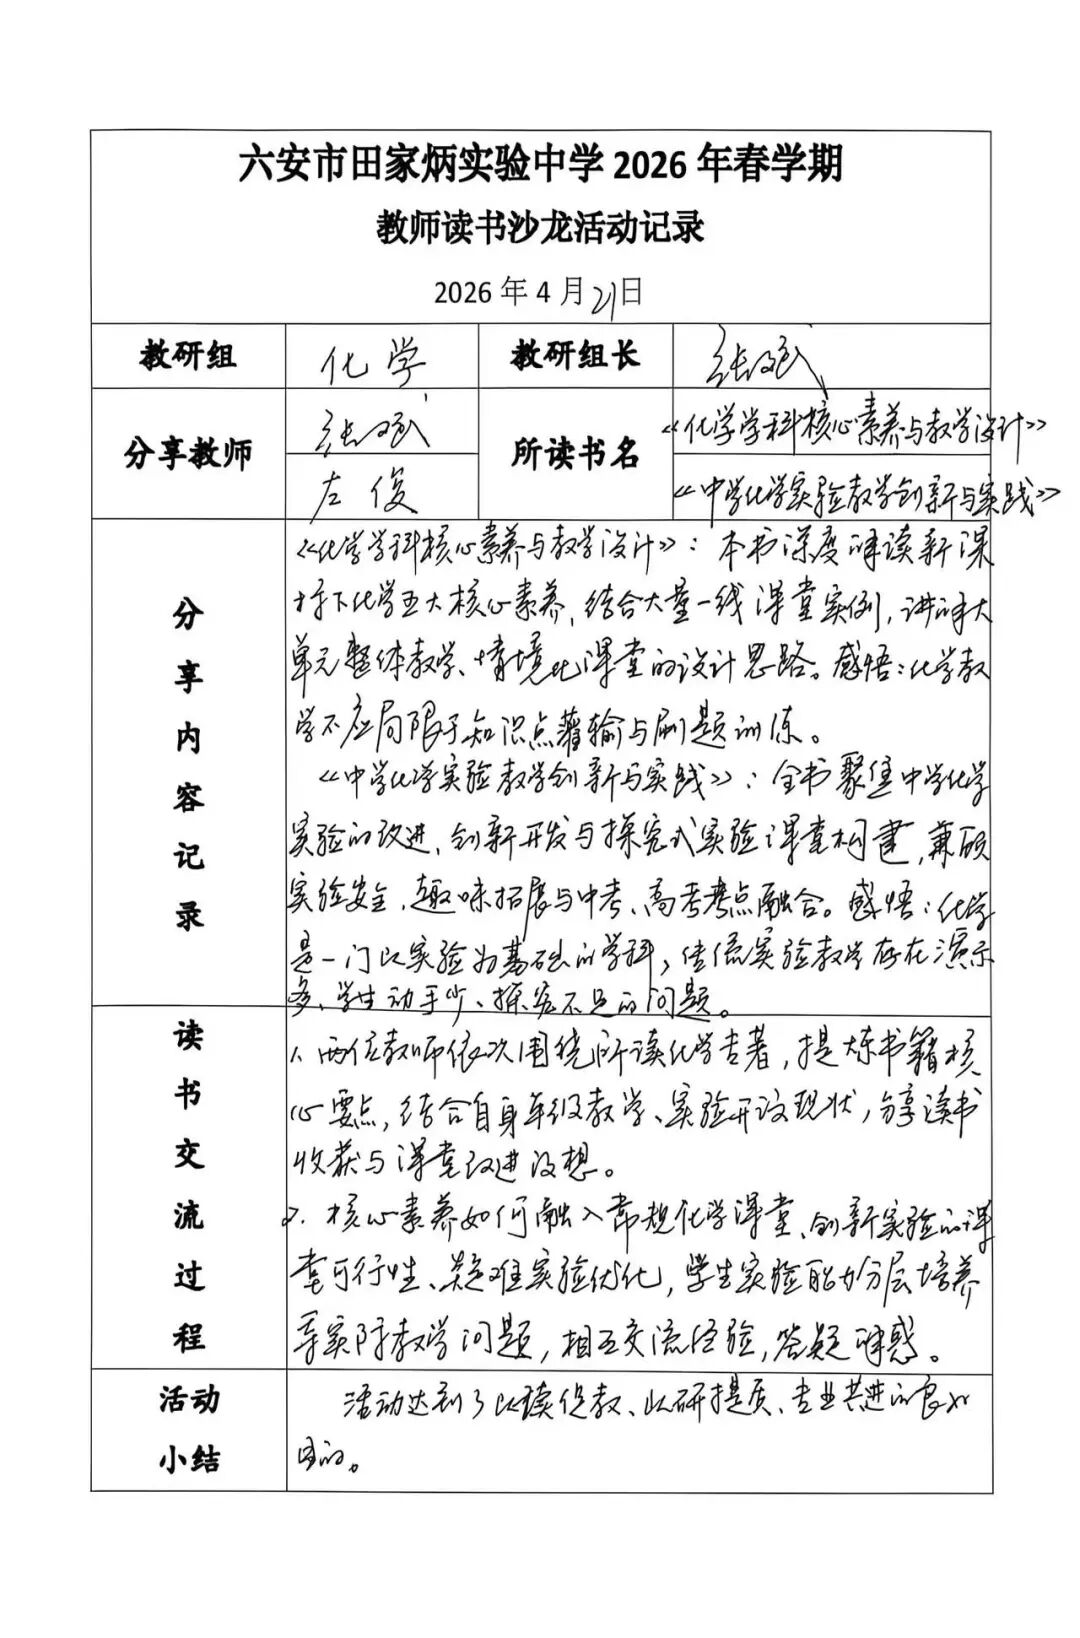 六安市田家炳实验中学2026年春学期
教师读书沙龙活动记录
2026年4月21日
教研组 化学 教研组长 张斌
分享教师 张斌 所读书名 《化学学科核心素养与教学设计》
左俊 《中学化学实验教学创新与实践》
分享内容记录
《化学学科核心素养与教学设计》：本书深度解读新课
标下化学五大核心素养，结合大量一线课堂实例，讲解大
单元整体教学、情境化课堂的设计思路。感悟：化学教
学不应局限于知识点灌输与刷题训练。
《中学化学实验教学创新与实践》：全书聚焦中学化学
实验的改进、创新开发与探究式实验课堂构建，兼顾
实验安全、趣味拓展与中考、高考考点融合。感悟：化学
是一门以实验为基础的学科，传统实验教学存在演示
多、学生动手少、探究不足的问题。
读书交流过程
1、两位教师依次围绕所读化学专著，提炼书籍核
心要点，结合自身年级教学、实验开设现状，分享读书
收获与课堂改进设想。
2、核心素养如何融入常规化学课堂、创新实验的课
堂可行性、疑难实验优化，学生实验能力分层培养
等实际教学问题，相互交流经验，答疑解惑。
活动小结
活动达到了以读促教、以研提质、专业共进的良好
目的。